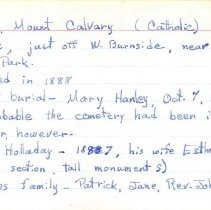 , Mount Calvary (Catholic)
, just off W. Burnside, near
Park.
ed in 1888
burial - Mary Hanley, Oct. 7,
obable the cemetery had been i
r, however -
Holladay - 1887, his wife Esth
section, tall monuments)
es family - Patrick, Jane, Rev. Joh